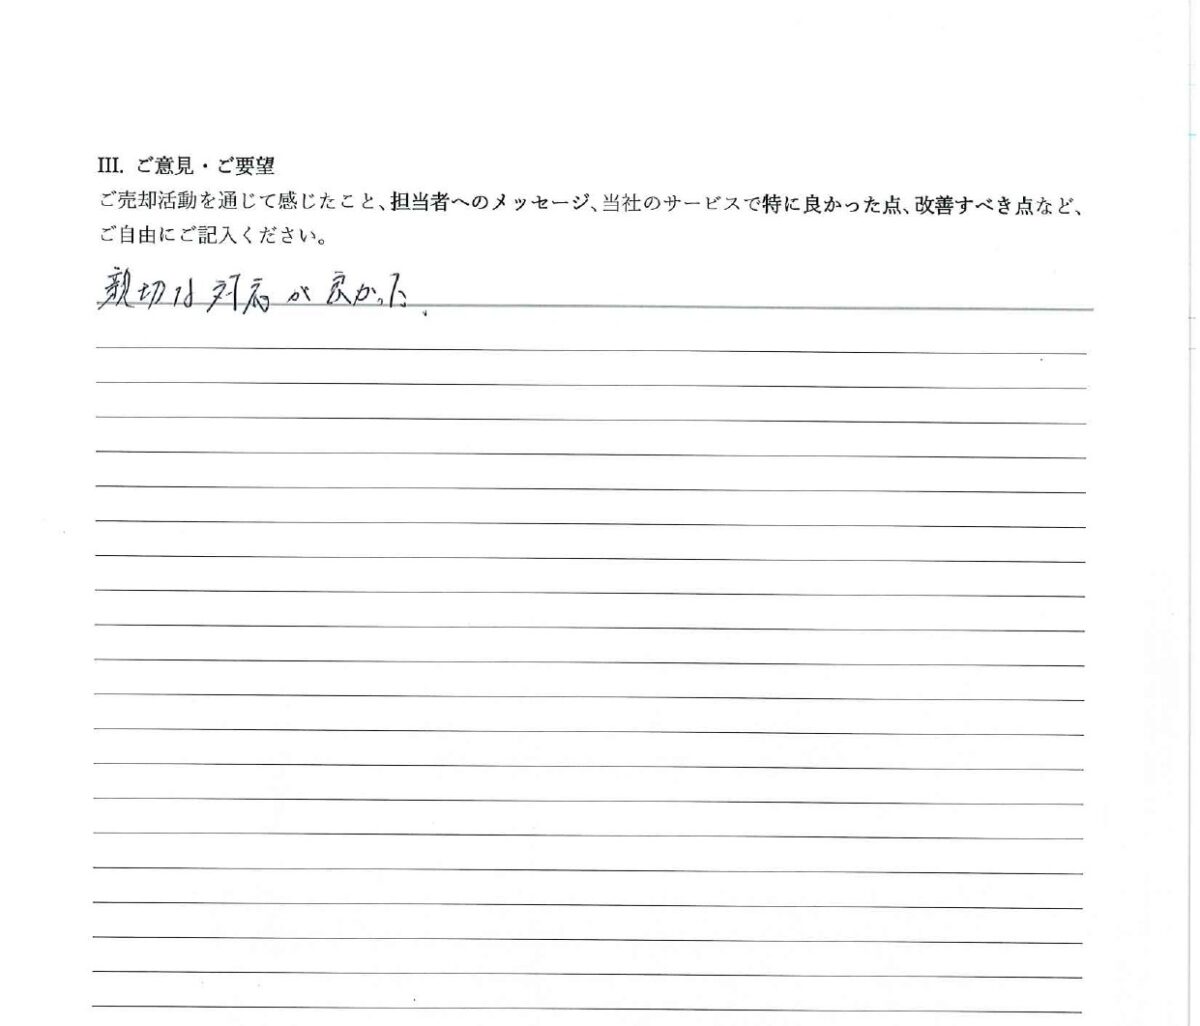 III. ご意見・ご要望
ご売却活動を通じて感じたこと、担当者へのメッセージ、当社のサービスで特に良かった点、改善すべき点など、
ご自由にご記入ください。
親切な対応が良かった.